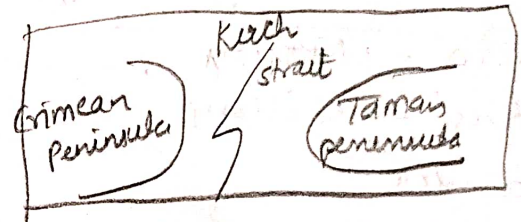 Kerch
strait
Crimean
Peninsula
Taman
peninsula